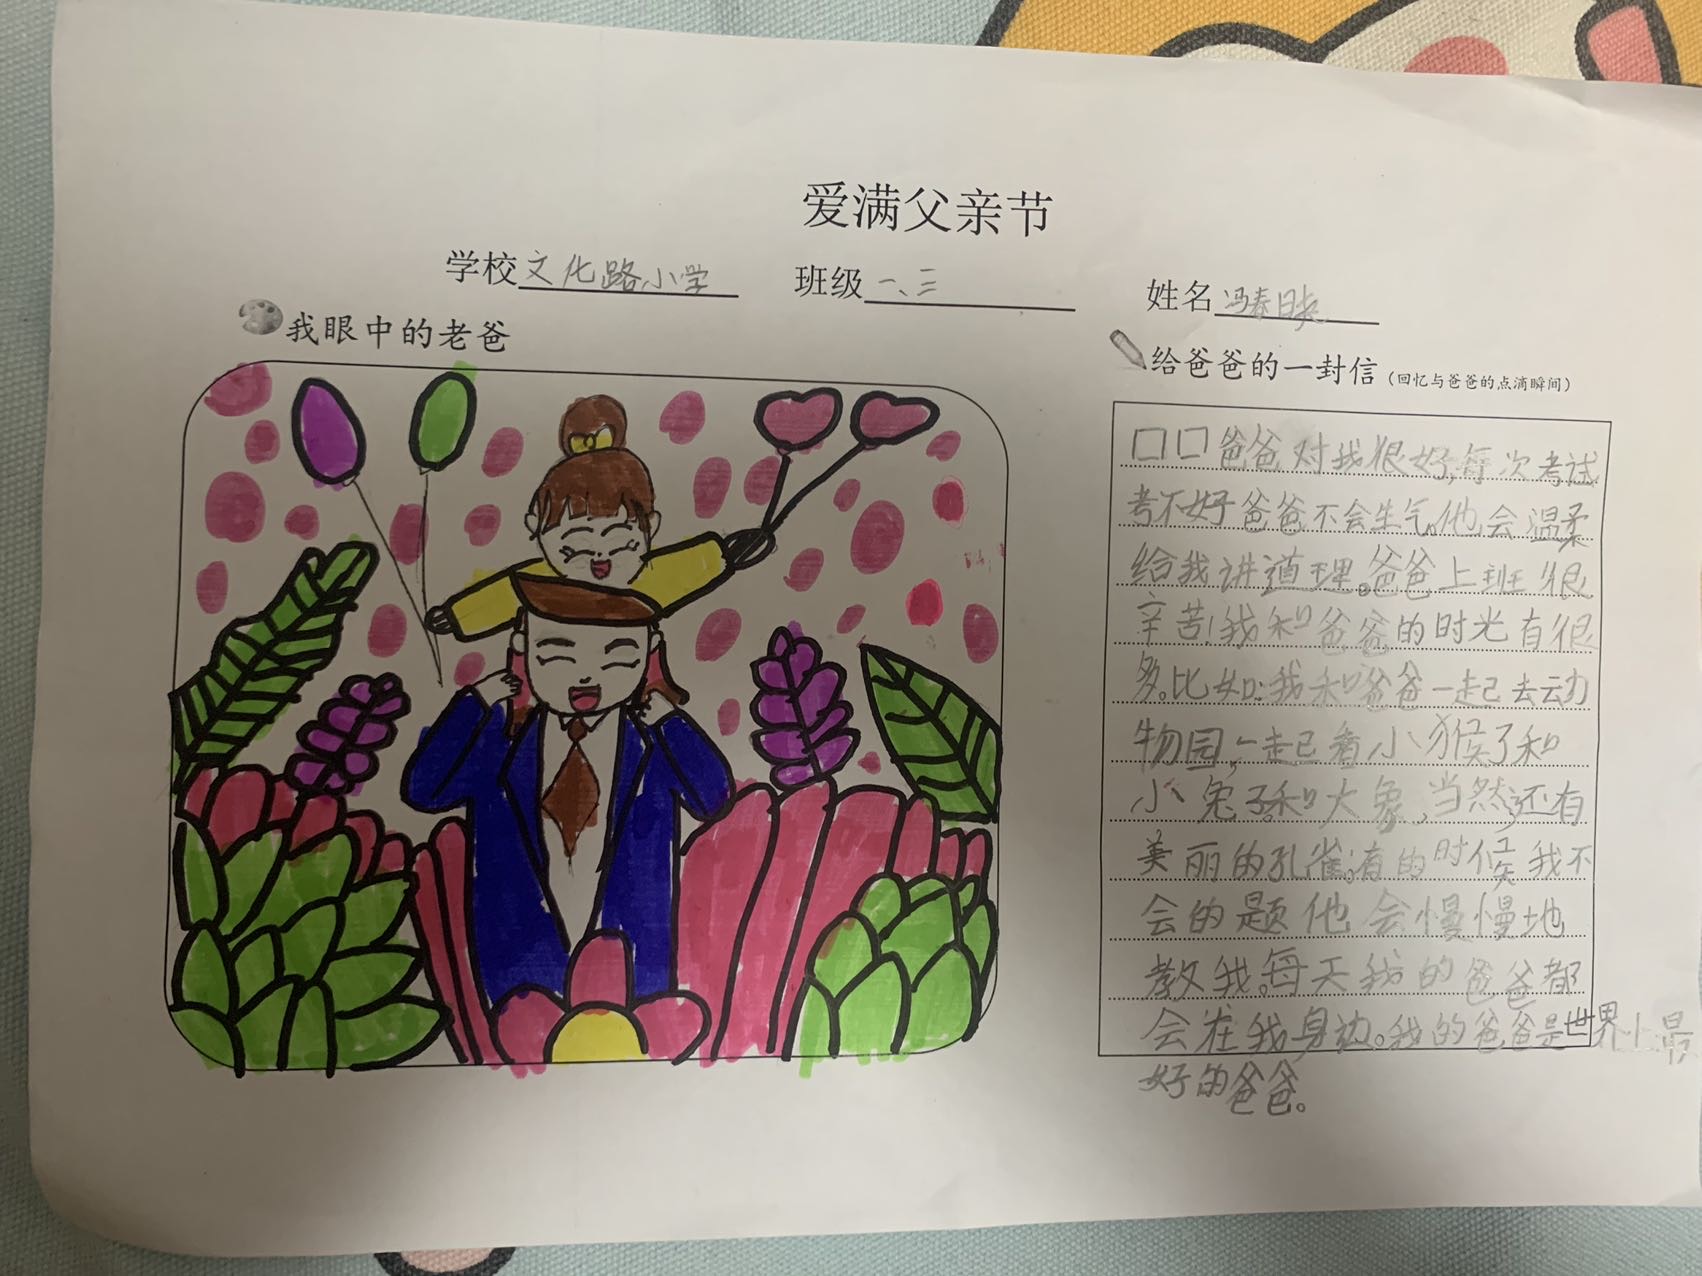 爱满父亲节
学校文化路小学 班级一、三 姓名冯春映
我眼中的老爸
给爸爸的一封信(回忆与爸爸的点滴瞬间)
口口爸爸对我很好,每次考试
考不好爸爸不会生气。他会温柔
给我讲道理。爸爸上班很
辛苦!我和爸爸的时光有很
多。比如:我和爸爸一起去动
物园,一起看小猴子和
小兔子和大象,当然还有
美丽的孔雀。有的时候我不
会的题他会慢慢地
教我。每天我的爸爸都
会在我身边。我的爸爸是世界上最
好的爸爸。